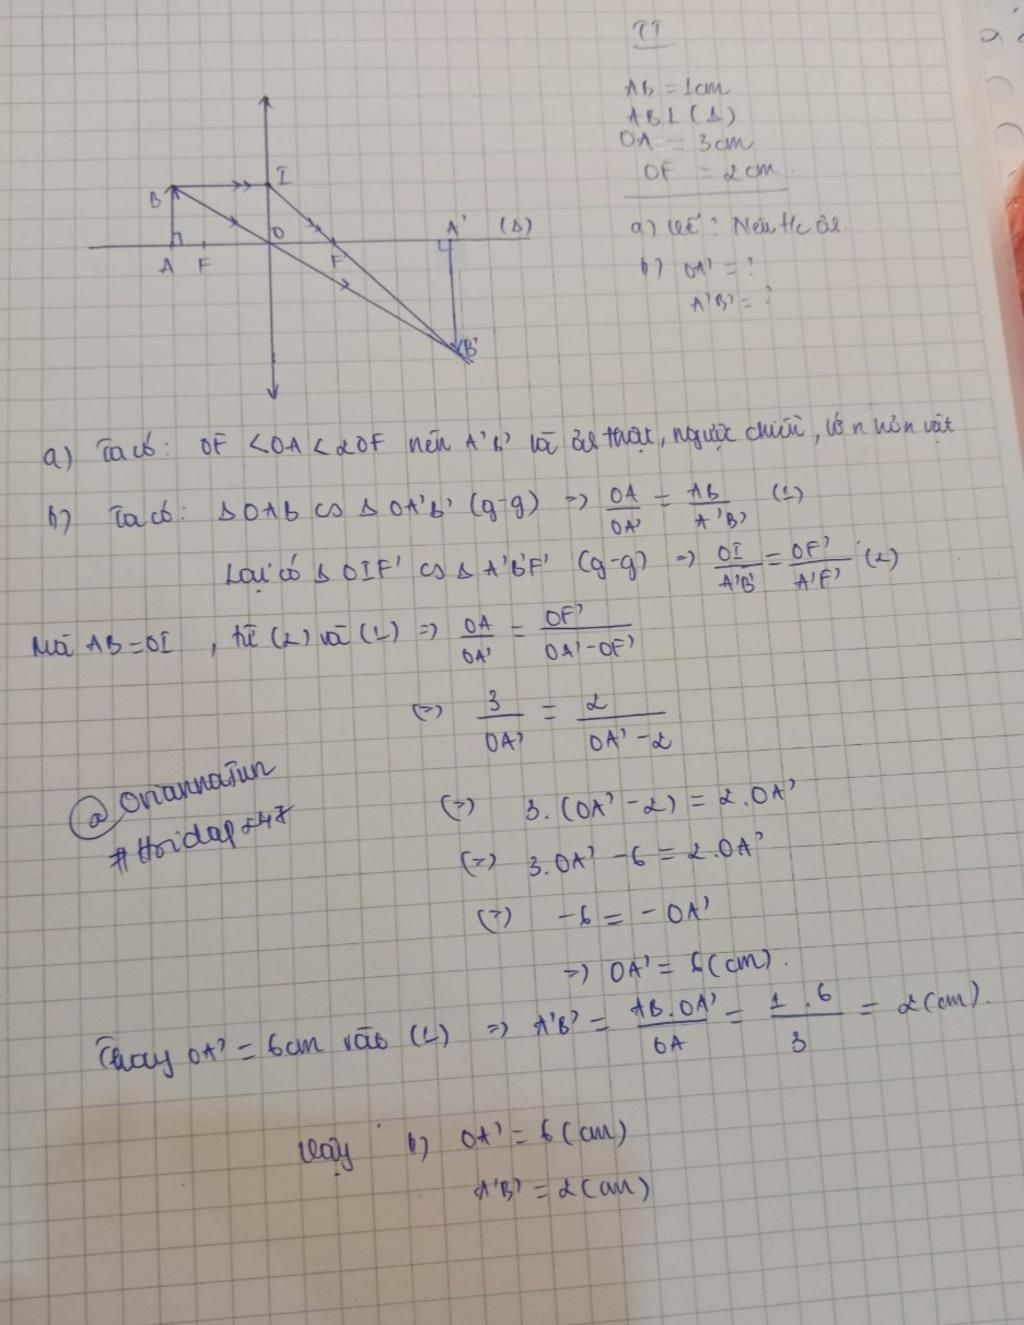 TT
AB = 1cm
AB ⊥ (Δ)
OA = 3cm
OF = 2cm
a) Vẽ? Nêu t/c ảnh
b) OA' = ?
A'B' = ?
B I
O A' (Δ)
A F F'
B'
a) Ta có: OF < OA < 2OF nên A'B' là ảnh thật, ngược chiều, lớn hơn vật
b) Ta có: Δ OAB ∽ Δ OA'B' (g-g) => OA/OA' = AB/A'B' (1)
Lại có Δ OIF' ∽ Δ A'B'F' (g-g) => OI/A'B' = OF'/A'F' (2)
Mà AB = OI, từ (1) và (2) => OA/OA' = OF'/OA'-OF'
(=) 3/OA' = 2/OA'-2
(=) 3.(OA' - 2) = 2.OA'
@oriannaJun
#Hoidap247
(=) 3.OA' - 6 = 2.OA'
(=) -6 = -OA'
=> OA' = 6(cm).
Thay OA' = 6cm vào (1) => A'B' = AB.OA'/OA = 1.6/3 = 2(cm).
Vậy b) OA' = 6(cm)
A'B' = 2(cm)